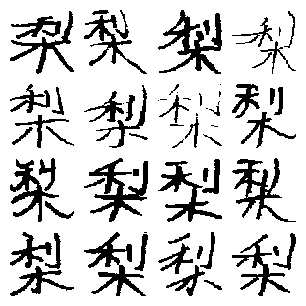 梨梨梨梨
梨梨梨梨
梨梨梨梨
梨梨梨梨